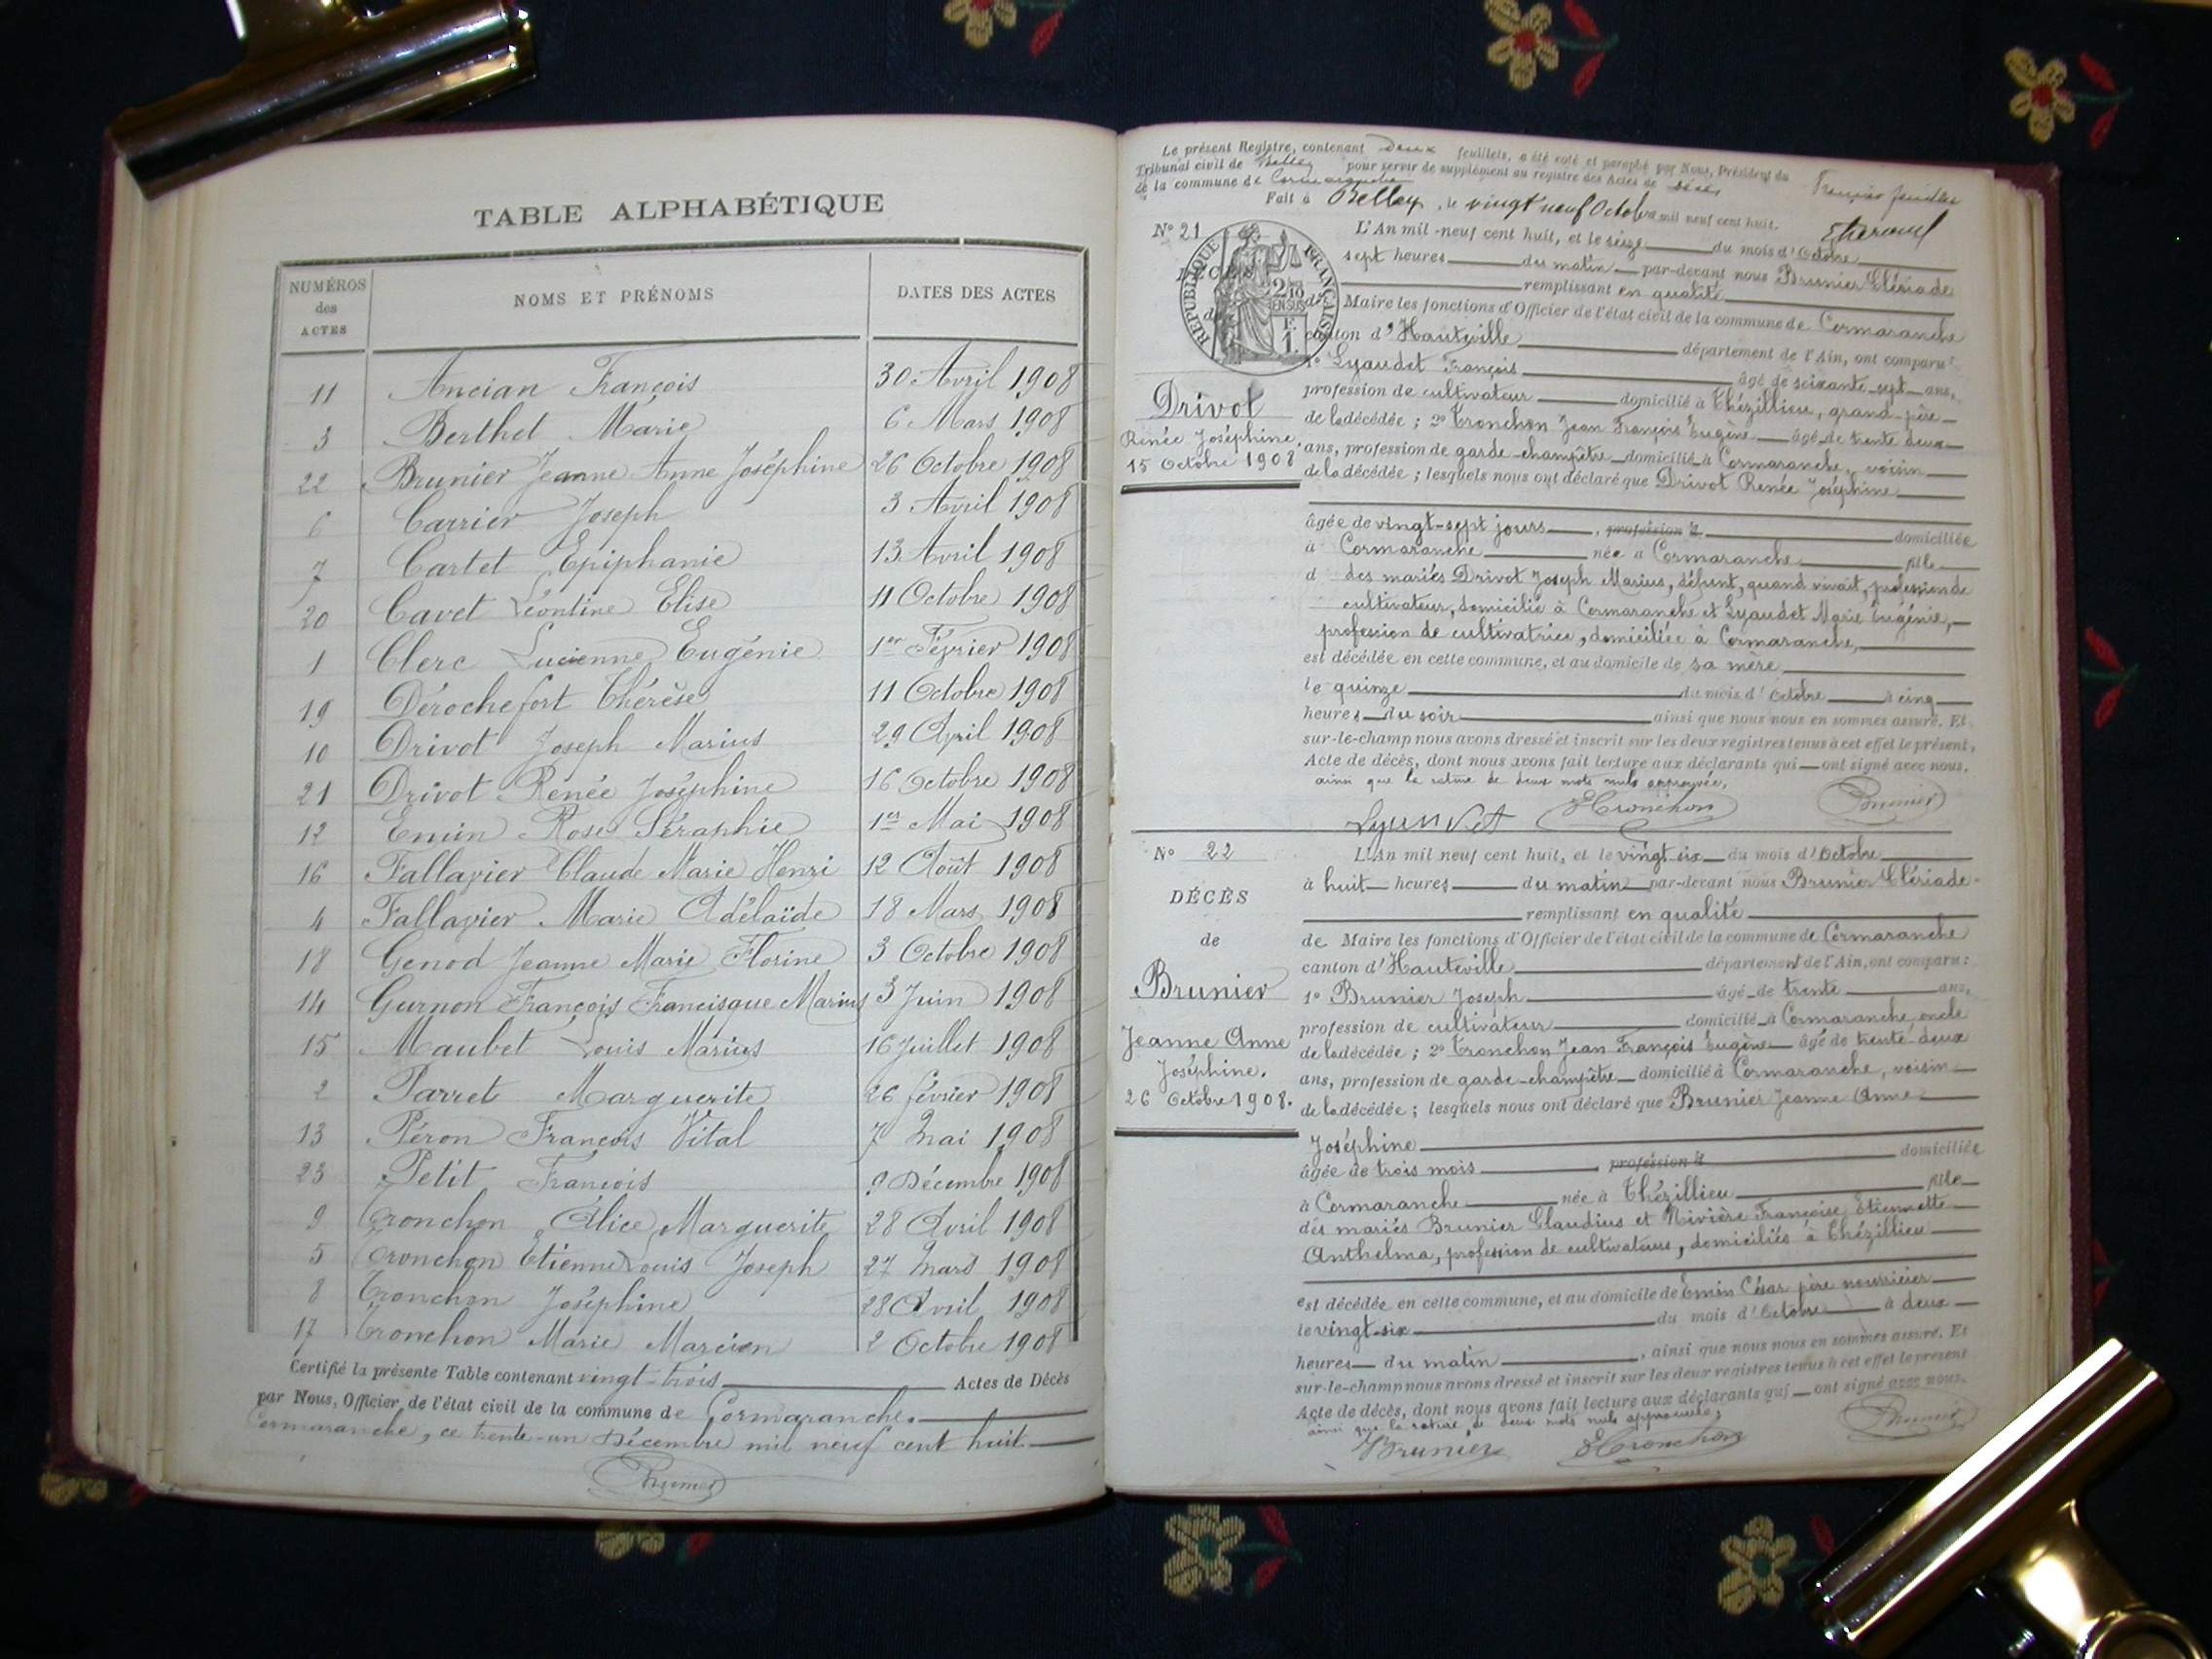 TABLE ALPHABÉTIQUE
NUMÉROS des ACTES
NOMS ET PRÉNOMS
DATES DES ACTES
11 Ancian François 30 Avril 1908
3 Berthet Marie 6 Mars 1908
22 Brunier Jeanne Anne Joséphine 26 Octobre 1908
6 Carrier Joseph 3 Avril 1908
7 Cartet Epiphanie 13 Avril 1908
20 Cavet Léontine Elise 11 Octobre 1908
1 Clerc Lucienne Eugénie 1er Février 1908
19 Dérochefort Thérèse 11 Octobre 1908
10 Drivot Joseph Marius 29 Avril 1908
21 Drivot Renée Joséphine 16 Octobre 1908
12 Emin Rose Séraphie 1er Mai 1908
16 Fallavier Claude Marie Henri 12 Août 1908
4 Fallavier Marie Adélaïde 18 Mars 1908
18 Genod Jeanne Marie Florine 3 Octobre 1908
14 Gurnon François Francisque Marius 3 Juin 1908
15 Maubet Louis Marius 16 Juillet 1908
2 Parret Marguerite 26 février 1908
13 Péron François Vital 7 Mai 1908
23 Petit François 9 Décembre 1908
9 Tronchon Alice Marguerite 28 Avril 1908
5 Tronchon Etienne Louis Joseph 27 Mars 1908
8 Tronchon Joséphine 28 Avril 1908
17 Tronchon Marie Marcien 2 Octobre 1908
Certifié la présente Table contenant vingt-trois Actes de Décès
par Nous, Officier de l'état civil de la commune de Cormaranche.
Cormaranche, ce trente-un Décembre mil neuf cent huit.
Brunier
Le présent Registre, contenant Deux feuillets, a été coté et paraphé par Nous, Président du
Tribunal civil de Belley pour servir de supplément au registre des Actes de décès
de la commune de Cormaranche
Premier feuillet
Fait à Belley, le vingt neuf Octobre mil neuf cent huit.
N° 21
RÉPUBLIQUE FRANÇAISE
2/10 EN SUS
F. 1.
DÉCÈS
de
Drivot
Renée Joséphine.
15 Octobre 1908
L'An mil neuf cent huit, et le seize du mois d'Octobre
sept heures du matin par-devant nous Brunier Clériade
remplissant en qualité
de Maire les fonctions d'Officier de l'état civil de la commune de Cormaranche
canton d'Hauteville département de l'Ain, ont comparu:
1° Lyaudet François âgé de soixante sept ans,
profession de cultivateur domicilié à Thézillieu, grand-père
de la décédée; 2° Tronchon Jean François Eugène âgé de trente deux
ans, profession de garde-champêtre domicilié à Cormaranche, voisin
de la décédée; lesquels nous ont déclaré que Drivot Renée Joséphine
âgée de vingt-sept jours, profession d domiciliée
à Cormaranche née à Cormaranche fille
d des mariés Drivot Joseph Marius, défunt, quand vivait, profession de
cultivateur, domicilié à Cormaranche et Lyaudet Marie Eugénie,
profession de cultivatrice, domiciliée à Cormaranche,
est décédée en cette commune, et au domicile de sa mère
le quinze du mois d'Octobre à cinq
heures du soir ainsi que nous nous en sommes assuré. Et
sur-le-champ nous avons dressé et inscrit sur les deux registres tenus à cet effet le présent,
Acte de décès, dont nous avons fait lecture aux déclarants qui ont signé avec nous.
ainsi que la rature de deux mots nuls approuvée,
Lyaudet ETronchon Brunier
N° 22
DÉCÈS
de
Brunier
Jeanne Anne
Joséphine.
26 Octobre 1908.
L'An mil neuf cent huit, et le vingt-six du mois d'Octobre
à huit heures du matin par-devant nous Brunier Clériade
remplissant en qualité
de Maire les fonctions d'Officier de l'état civil de la commune de Cormaranche
canton d'Hauteville département de l'Ain, ont comparu:
1° Brunier Joseph âgé de trente ans,
profession de cultivateur domicilié à Cormaranche, oncle
de la décédée; 2° Tronchon Jean François Eugène âgé de trente-deux
ans, profession de garde-champêtre domicilié à Cormaranche, voisin
de la décédée; lesquels nous ont déclaré que Brunier Jeanne Anne
Joséphine
âgée de trois mois, profession d domiciliée
à Cormaranche née à Thézillieu fille
des mariés Brunier Claudius et Nivière Françoise Etiennette
Anthelma, profession de cultivateurs, domiciliés à Thézillieu
est décédée en cette commune, et au domicile de Emin César père nourricier
le vingt-six du mois d'Octobre à deux
heures du matin, ainsi que nous nous en sommes assuré. Et
sur-le-champ nous avons dressé et inscrit sur les deux registres tenus à cet effet le présent
Acte de décès, dont nous avons fait lecture aux déclarants qui ont signé avec nous.
ainsi que la rature de deux mots nuls approuvée;
Brunier ETronchon Brunier